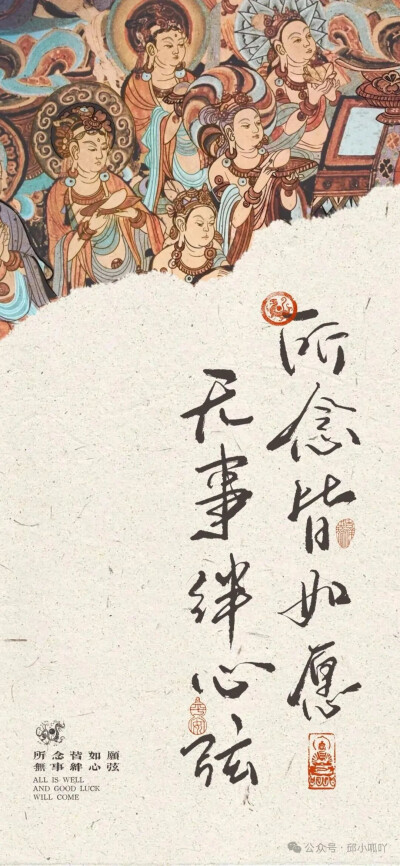 所念皆如愿
无事绊心弦
所念皆如願
無事絆心弦
ALL IS WELL
AND GOOD LUCK
WILL COME
公众号